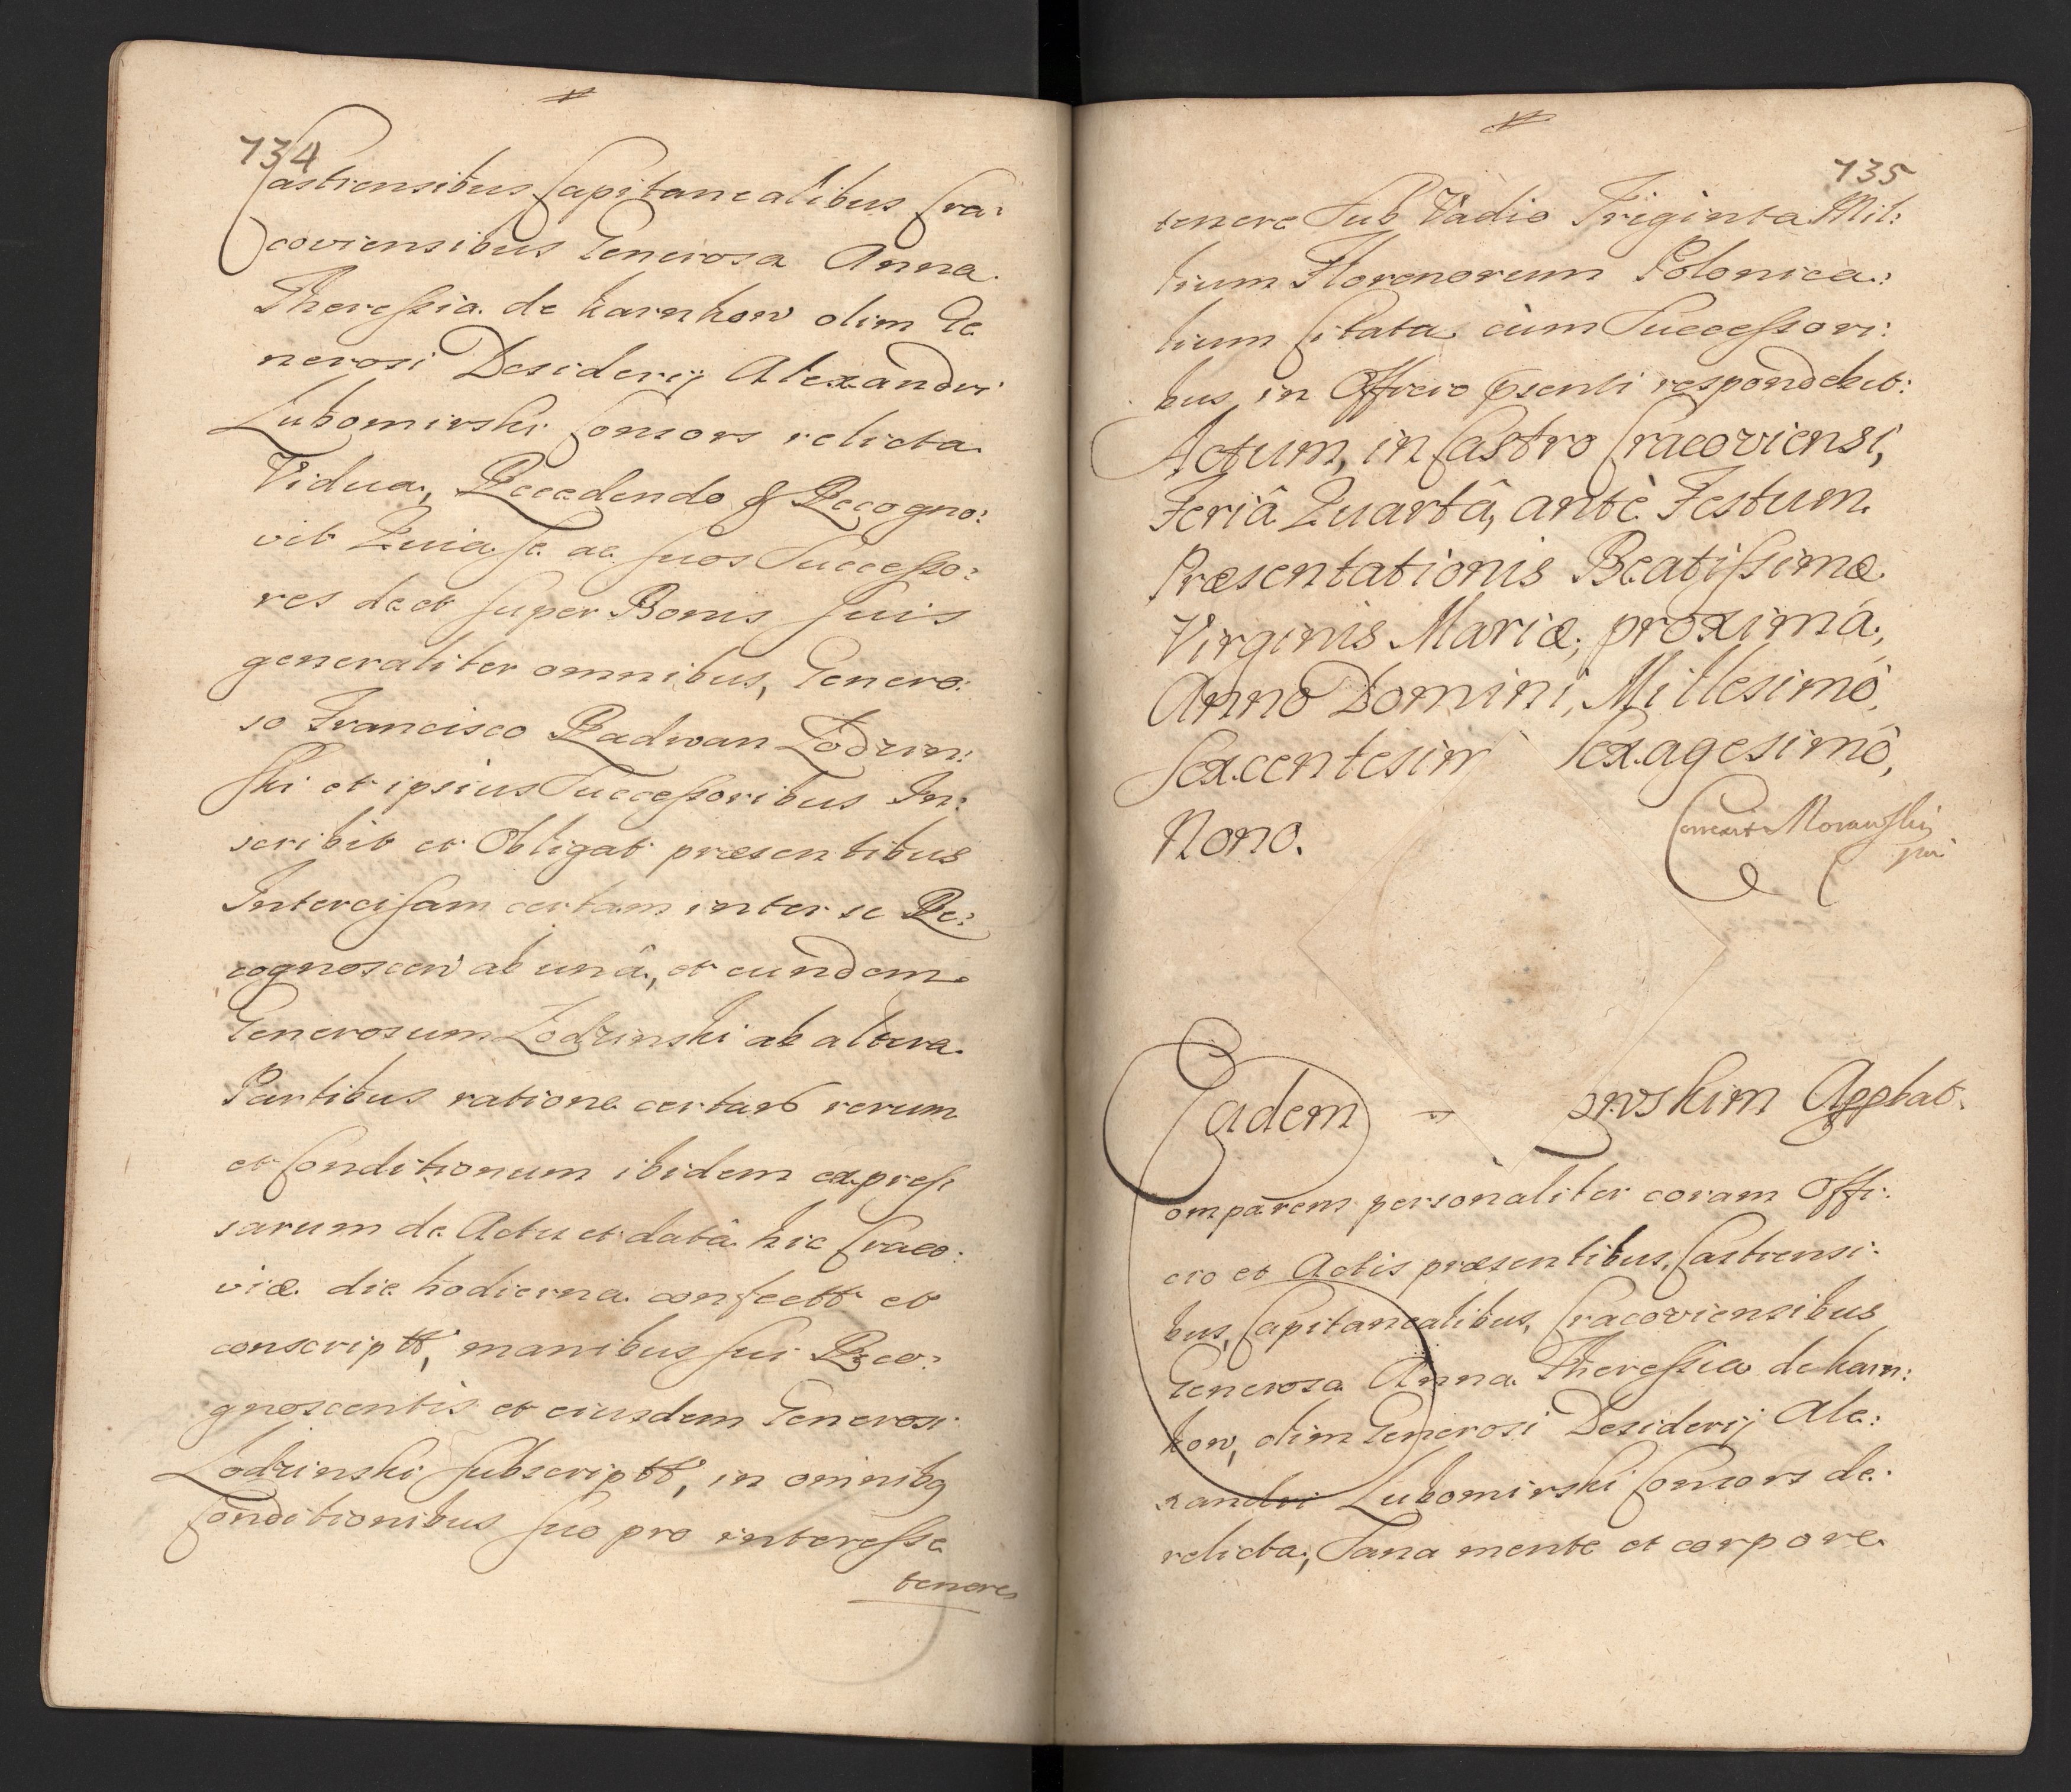 734
Castrensibus Capitanealibus Cra:
coviensibus Generosa Anna
Theressia de Karnkow olim Ge
nerosi Desiderij Alexandri
Lubomirski Consors relicta
Vidua, Recedendo & Recogno:
vit Quia se ac suos Successo:
res de et super Bonis suis
generaliter omnibus, Genero:
so Francisco Radwan Łodzin:
ski et ipsius Successoribus In:
scribit et Obligat præsentibus
Intercisam certam inter se Re:
cognoscen ab unâ, et eundem
Generosum Łodzinski ab altera
Partibus ratione certarũ rerum
et Conditionum ibidem expres
sarum de Actu et datâ hic Craco:
viæ die hodierna confectt et
conscriptt, manibus sui Reco:
gnoscentis et eiusdem Generosi
Łodzinski subscriptt, in omnibq
Conditionibus suo pro interesse
tenere
735
tenere Sub Vadio Triginta Mil:
lium Florenorum Polonica:
lium Citata cùm Successori:
bus in Officio pñsenti respondebit:
Actum, in Castro Cracoviensi,
Feriâ Quartâ, antè Festum
Præsentationis Beatissimæ
Virginis Mariæ, proximá,
Anno Domini, Millesimô,
Sexcentesim Sexagesimô,
Nono.
Eadem owskim Appbat
omparens personaliter coram Offi:
cio et Actis præsentibus, Castrensi:
bus, Capitanealibus, Cracoviensibus
Generosa Anna Theressia de Karn:
kow, olim Generosi Desiderij Ale:
xandri Lubomirski Consors de:
relicta, Sana mente et corpore